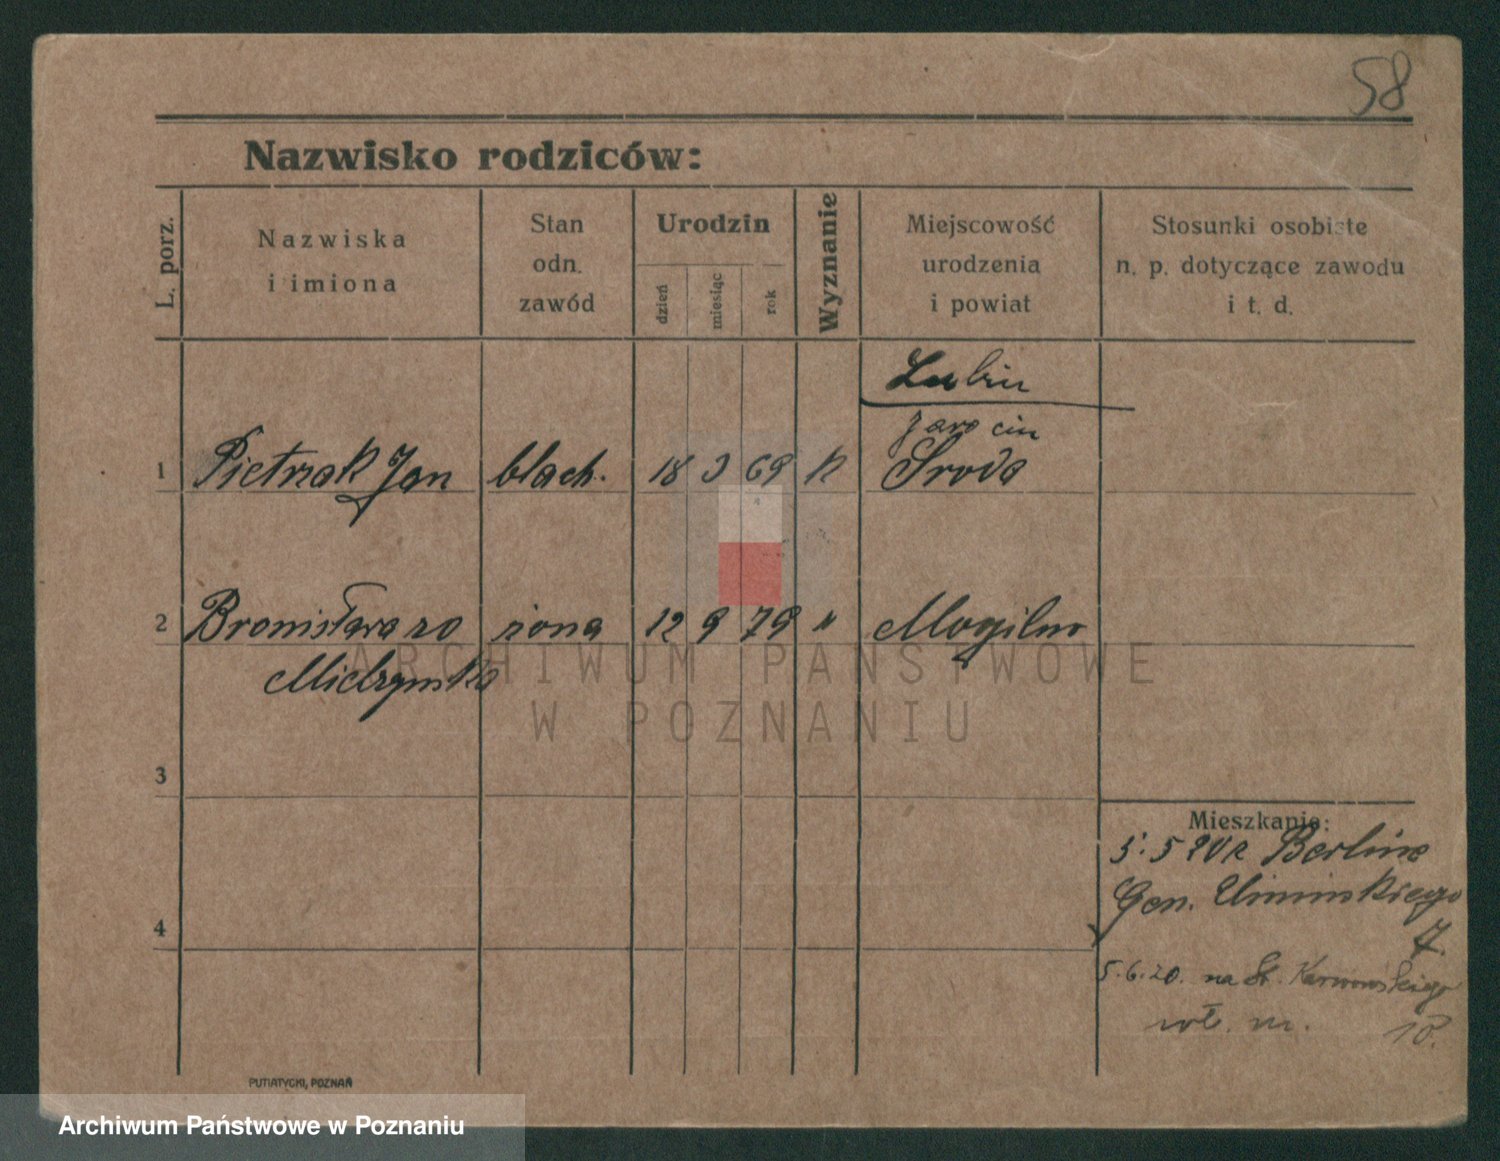 58
Nazwisko rodziców:
L. porz.
Nazwiska
i imiona
Stan
odn.
zawód
Urodzin
dzień
miesiąc
rok
Wyznanie
Miejscowość
urodzenia
i powiat
Stosunki osobiste
n. p. dotyczące zawodu
i t. d.
Lubin
Jarocin
1 Pietrzak Jan blach. 18 3 69 k Środa
2 Bronisława zo żona 12 9 79 " Mogilno
ARCHIWUM PAŃSTWOWE
W POZNANIU
3
4
Mieszkanie:
z Berlina
Gen. Umińskiego
7.
5.6.20. na St. Karwowskiego
nr. 18.
PUTIATYCKI, POZNAŃ
Archiwum Państwowe w Poznaniu